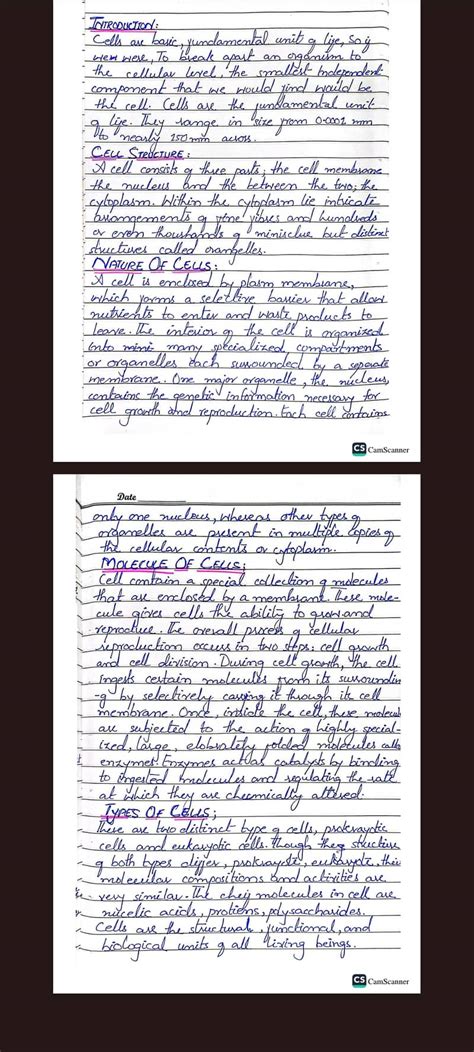 INTRODUCTION:
Cells are basic, fundamental unit of life, So if
were were, To break apart an organism to
the cellular level, the smallest independent
component that we would find would be
the cell. Cells are the fundamental unit
of life. They range in size from 0.0001 mm
to nearly 150mm across.
CELL STRUCTURE:
A cell consists of three parts; the cell membrane
the nucleus and the between the two, the
cytoplasm. Within the cytoplasm lie intricate
arrangements of fine fibres and hundreds
or even thoushands of minisclue but distinct
structures called orangelles.
NATURE OF CELLS:
A cell is enclosed by plasm membrane,
which forms a selective barrier that allow
nutrients to enter and waste products to
leave. The interior of the cell is organized
into many specialized compartments
or organelles each surrounded by a separate
membrane. One major organelle, the nucleus,
contains the genetic information necessary for
cell growth and reproduction. Each cell contains
CS CamScanner
Date
only one nucleus, whereas other types of
organelles are present in multiple copies of
the cellular contents or cytoplasm.
MOLECULE OF CELLS;
Cell contain a special collection of molecules
that are enclosed by a membrant. These mole-
cule gives cells the ability to grow and
reproduce. The overall process of cellular
reproduction occurs in two steps: cell growth
and cell division. During cell growth, the cell
ingests certain molecules from its surroundin
-g by selectively carrying it through its cell
membrane. Once, inside the cell, these molecul
are subjected to the action of highly special-
ized, large, elaborately folded molecules calls
enzymes. Enzymes act as catalysts by binding
to ingested molecules and regulating the rate
at which they are chemically altered.
TYPES OF CELLS;
There are two distinct type of cells, prokaryotic
cells and eukaryotic cells. Though the structure
of both types differ, prokaryotic, eukaryote, their
molecular compositions and activities are
very similar. The chief molecules in cell are
nucelic acids, protiens, polysaccharides.
Cells are the structural, functional, and
biological units of all living beings.
CS CamScanner